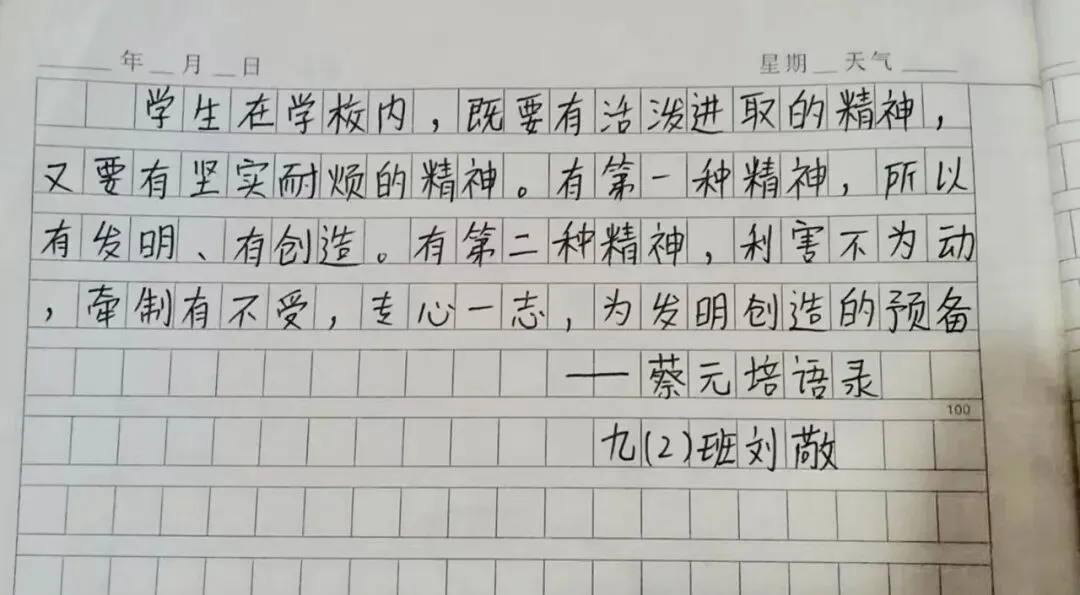 年 月 日 星期 天气
学生在学校内，既要有活泼进取的精神，
又要有坚实耐烦的精神。有第一种精神，所以
有发明、有创造。有第二种精神，利害不为动
，牵制有不受，专心一志，为发明创造的预备
——蔡元培语录
100
九(2)班刘敬